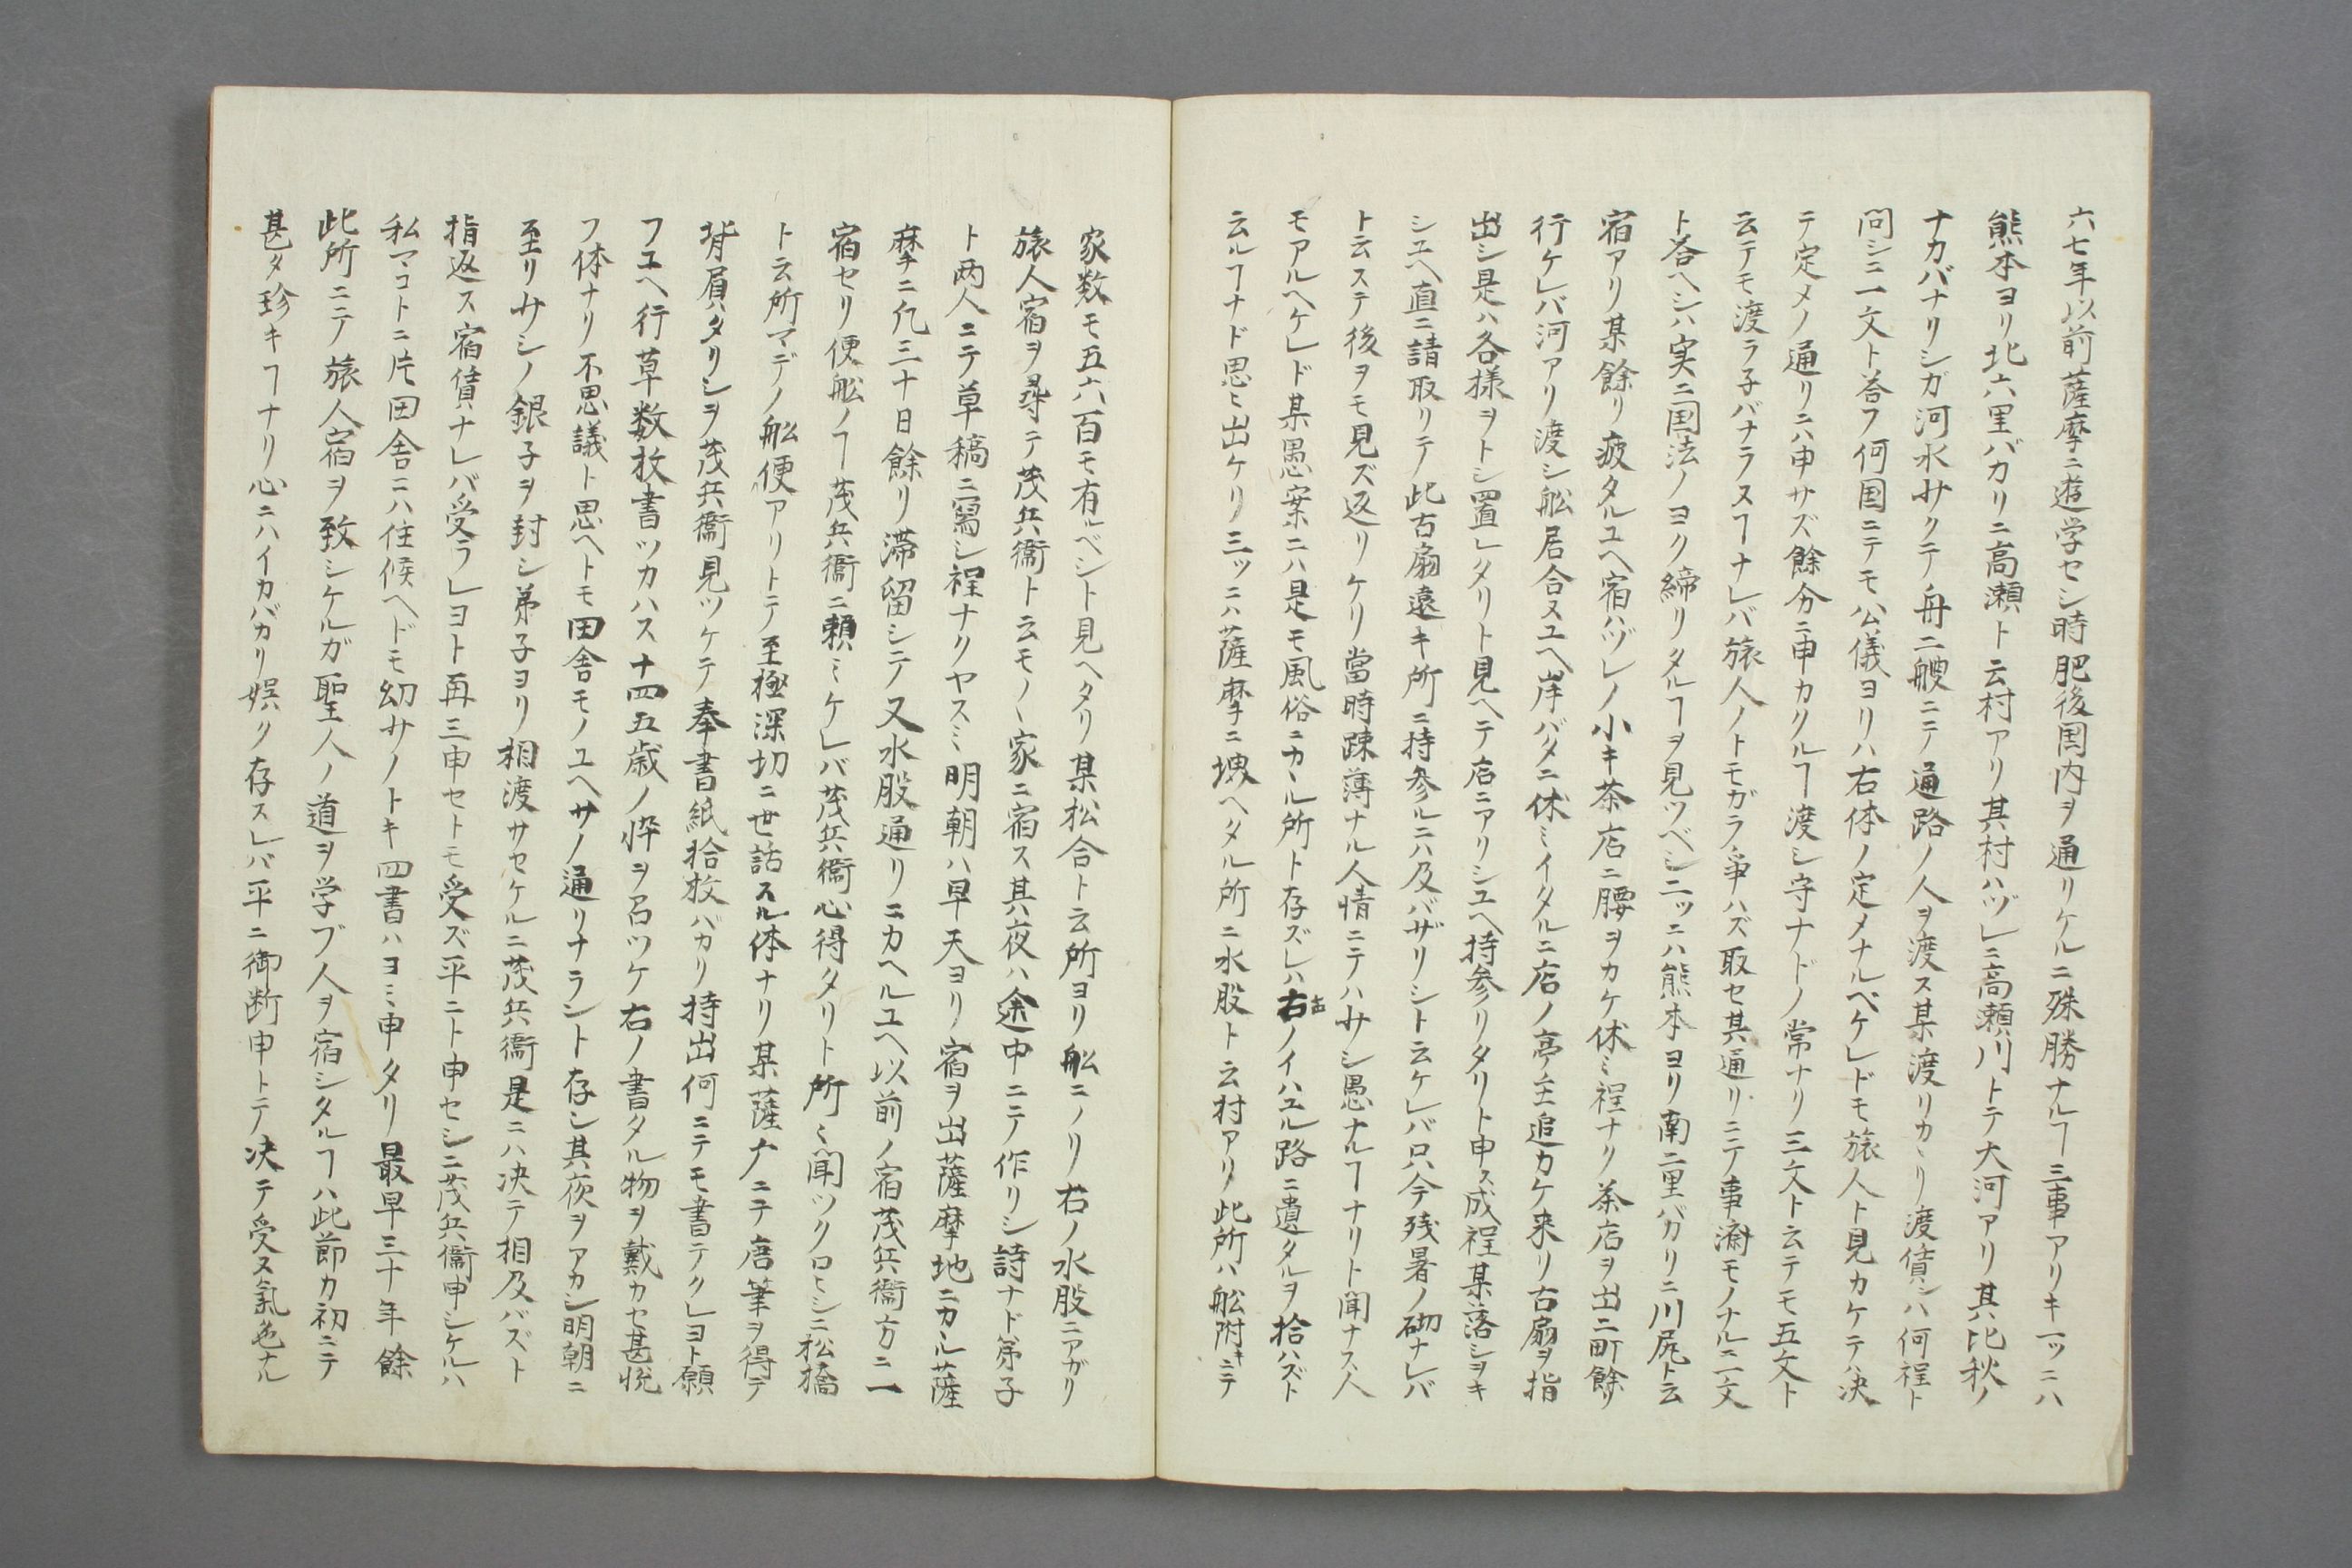 六七年以前薩摩ニ遊学セシ時肥後国内ヲ通リケルニ殊勝ナルヿ三事アリキ一ツニハ
熊本ヨリ北六里バカリニ高瀬ト云村アリ其村ハヅレニ高瀬川トテ大河アリ其比秋ノ
ナカバナリシガ河水サクテ舟二艘ニテ通路ノ人ヲ渡ス某渡リカヽリ渡賃ハ何程ト
問シニ一文ト答フ何国ニテモ公儀ヨリハ右体ノ定メナルベケレドモ旅人ト見カケテハ决
テ定メノ通リニハ申サズ餘分ニ申カクルヿ渡シ守ナドノ常ナリ三文ト云テモ五文ト
云テモ渡ラ子バナラヌヿナレバ旅人ノトモガラ爭ハズ取セ其通リニテ事濟モノナルニ一文
ト答ヘシハ実ニ国法ノヨク締リタルヿヲ見ツベシ二ツニハ熊本ヨリ南二里バカリニ川尻ト云
宿アリ某餘リ疲タルユヘ宿ハヅレノ小キ茶店ニ腰ヲカケ休ミ程ナク茶店ヲ出二町餘リ
行ケレバ河アリ渡シ舩居合ヌユヘ岸バタニ休ミイタルニ店ノ亭主追カケ来リ古扇ヲ指
出シ是ハ各様ヲトシ置レタリト見ヘテ店ニアリシユヘ持参リタリト申ス成程某落シヲキ
シユヘ直ニ請取リテ此古扇遠キ所ニ持参ルニハ及バザリシト云ケレバ只今残暑ノ砌ナレバ
ト云ステ後ヲモ見ズ返リケリ當時踈薄ナル人情ニテハサシ愚ナルヿナリト聞ナス人
モアルヘケレド某愚案ニハ是モ風俗ニカヽル所ト存ズレハ古ノイハユル路ニ遺タルヲ拾ハズト
云ルヿナド思ヒ出ケリ三ツニハ薩摩ニ堺ヘタル所ニ水股ト云村アリ此所ハ舩附キニテ
家数モ五六百モ有ルベシト見ヘタリ某松合ト云所ヨリ舩ニノリ右ノ水股ニアガリ
旅人宿ヲ尋テ茂兵衞ト云モノヽ家ニ宿ス其夜ハ途中ニテ作リシ詩ナド弟子
ト両人ニテ草稿ニ寫シ程ナクヤスミ明朝ハ早天ヨリ宿ヲ出薩摩地ニカヽル薩
摩ニ凢三十日餘リ滞留シテ又水股通リニカヘルユヘ以前ノ宿茂兵衞方ニ一
宿セリ便舩ノヿ茂兵衞ニ頼ミケレバ茂兵衞心得タリト所々聞ツクロヒシニ松橋
ト云所マデノ舩便アリトテ至極深切ニ世話スル体ナリ某薩ナニテ唐筆ヲ得テ
背屓タリシヲ茂兵衞見ツケテ奉書紙拾枚バカリ持出何ニテモ書テクレヨト願
フユヘ行草数枚書ツカハス十四五歳ノ忰ヲ召ツケ右ノ書タル物ヲ戴カセ甚悦
フ体ナリ不思議ト思ヘトモ田舎モノユヘサノ通リナラント存シ其夜ヲアカシ明朝ニ
至リサシノ銀子ヲ封シ弟子ヨリ相渡サセケルニ茂兵衞是ニハ决テ相及バズト
指返ス宿賃ナレバ受ラレヨト再三申セトモ受ズ平ニト申セシニ茂兵衞申シケルハ
私マコトニ片田舎ニハ住候ヘドモ幼サノトキ四書ハヨミ申タリ最早三十年餘
此所ニテ旅人宿ヲ致シケルガ聖人ノ道ヲ学ブ人ヲ宿シタルヿハ此節カ初ニテ
甚タ珍キヿナリ心ニハイカバカリ娯ク存スレバ平ニ御断申トテ决テ受ヌ氣色ナル